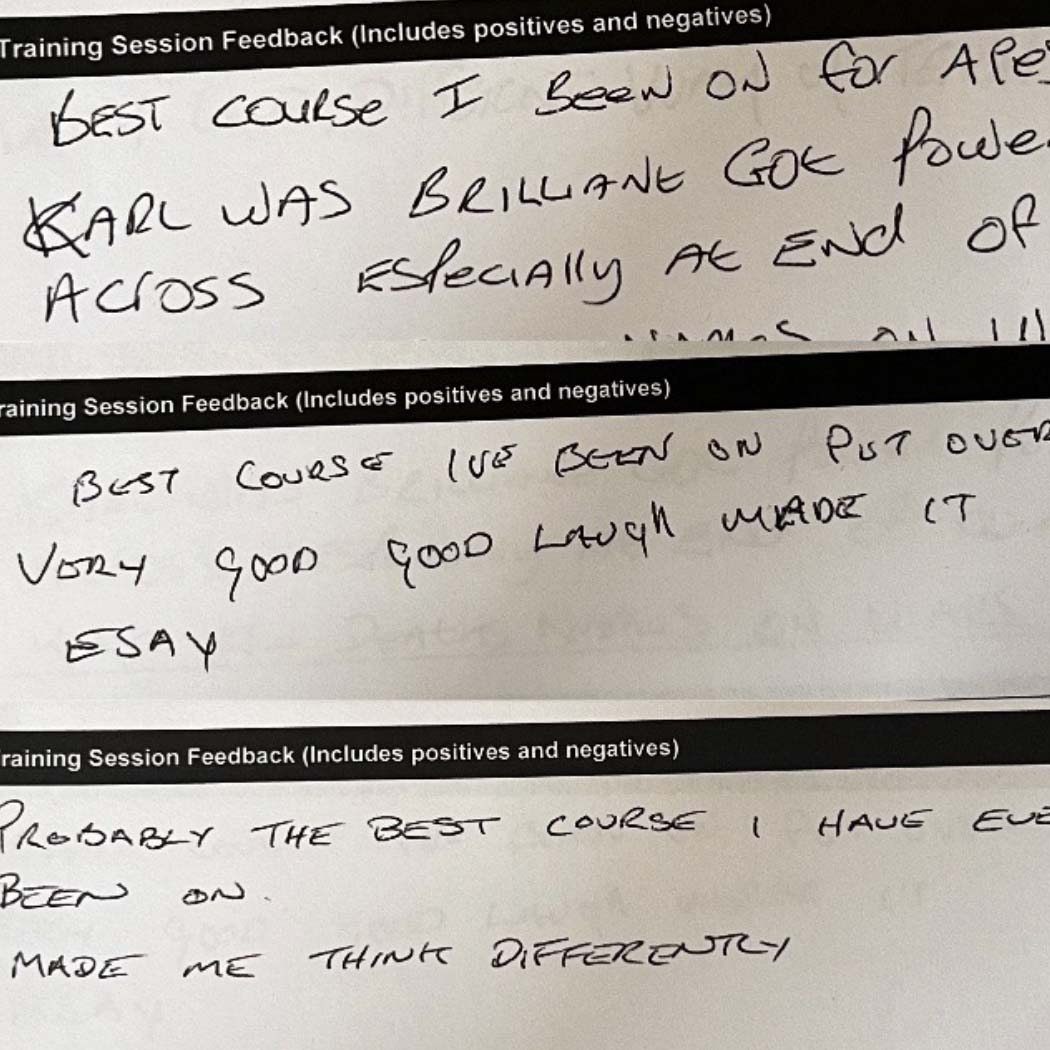 Training Session Feedback (Includes positives and negatives)
BEST COURSE I BEEN ON for
KARL WAS BRILLIANt GOt
ACrOSS ESPeCIAlly At END OF
raining Session Feedback (Includes positives and negatives)
BEST COURSE IVE BEEN ON PUT OVER
VERY GOOD GOOD LAUGH MADE IT
ESAY
raining Session Feedback (Includes positives and negatives)
PROBABLY THE BEST COURSE I HAVE EVE
BEEN ON.
MADE ME THINK DIFFERENTLY